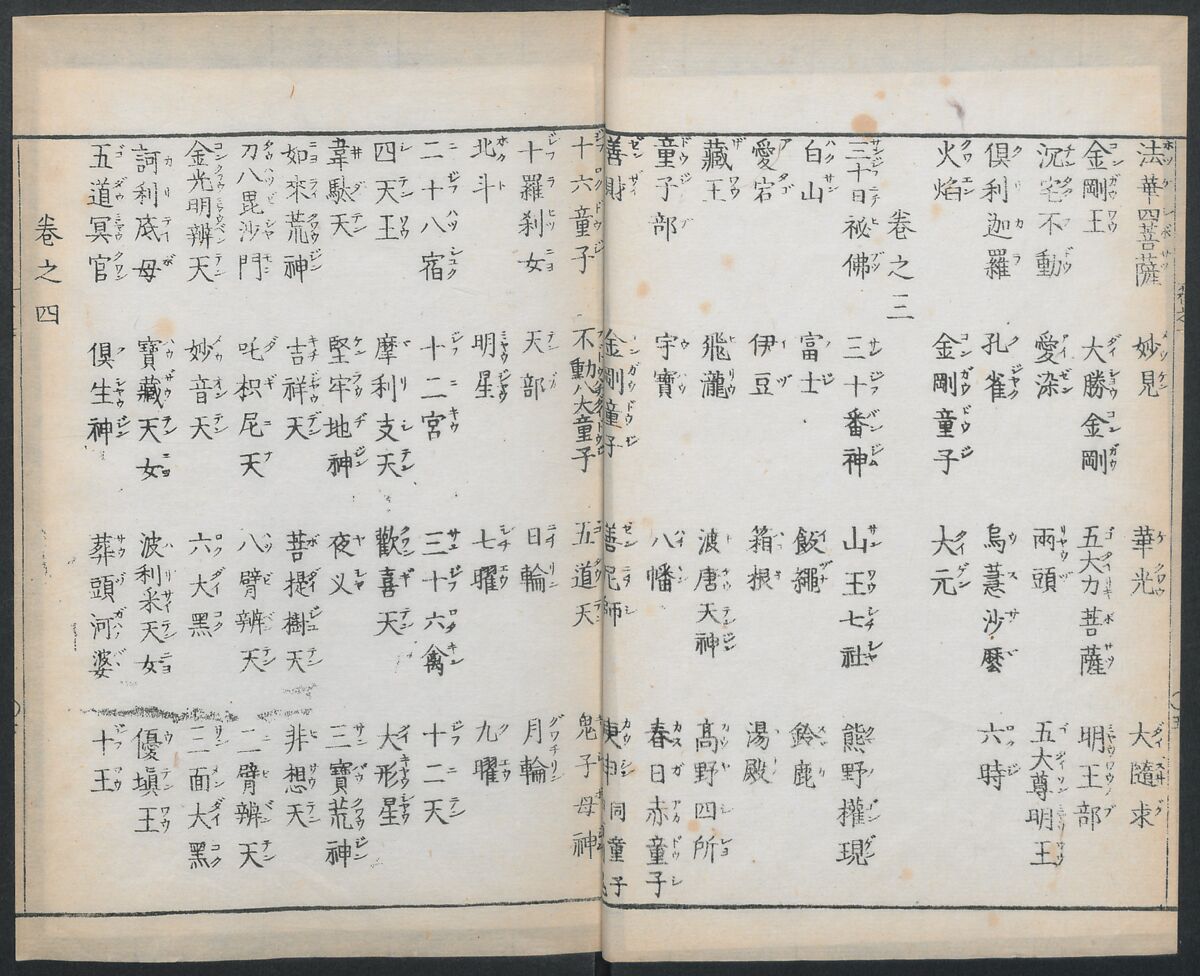 法華四菩薩 妙見 華光 大隨求
金剛王 大勝金剛 五大力菩薩 明王部
沉宅不動 愛染 兩頭 五大尊明王
俱利迦羅 孔雀 烏蒭沙麼 六時
火焰 金剛童子 大元
卷之三
三十日祕佛 三十番神 山王七社 熊野權現
白山 富士 飯繩 鈴鹿
愛宕 伊豆 箱根 湯殿
藏王 飛瀧 波唐天神 高野四所
童子部 宇寶 八幡 春日赤童子
善財 金剛童子 善尼師 庚申 同童子
十六童子 不動八大童子 五道天 鬼子母神
十羅刹女 天部 日輪 月輪
北斗 明星 七曜 九曜
二十八宿 十二宮 三十六禽 十二天
四天王 摩利支天 歡喜天 大形星
韋馱天 堅牢地神 夜叉 三寶荒神
如來荒神 吉祥天 菩提樹天 非想天
刀八毘沙門 吒枳尼天 八臂辨天 二臂辨天
金光明辨天 妙音天 六大黑 三面大黑
訶利底母 寶藏天女 波利采天女 優塡王
五道冥官 俱生神 葬頭河婆 十王
卷之四